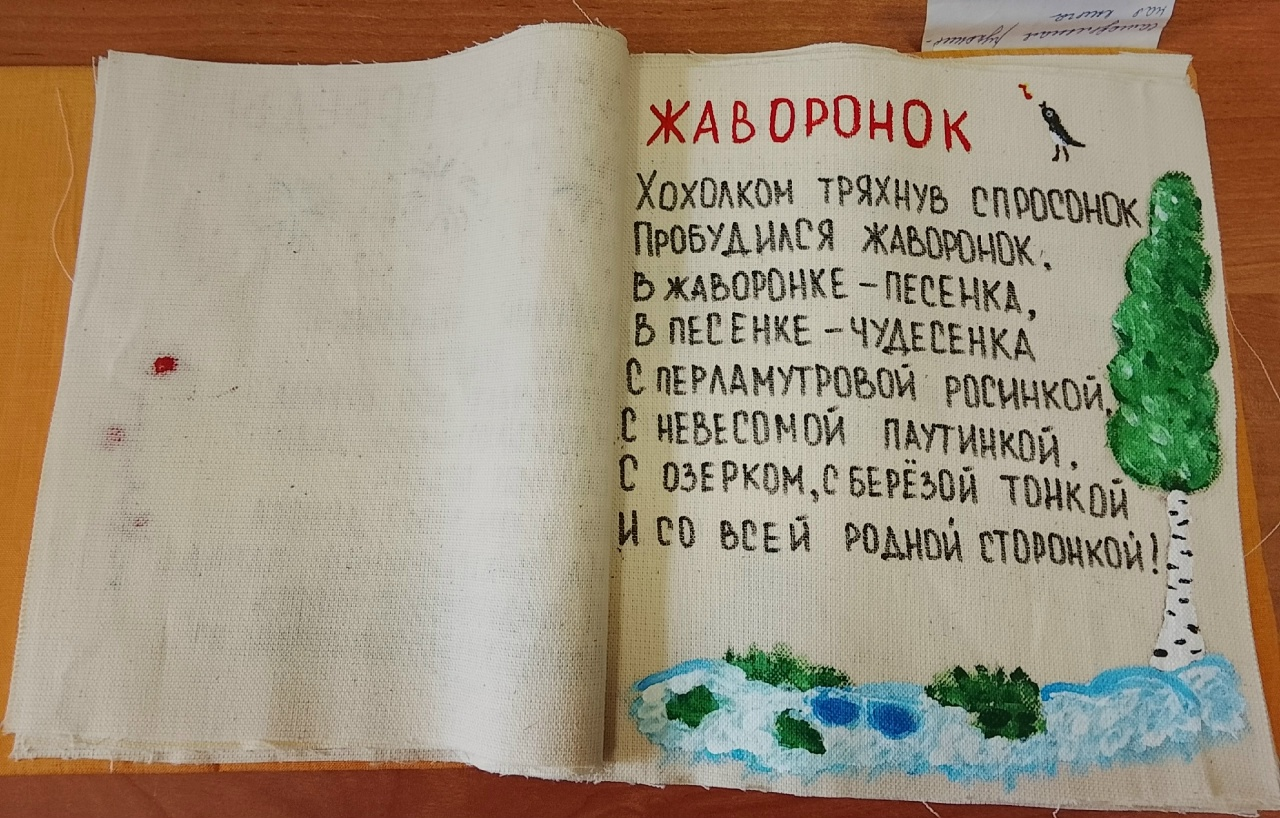 ЖАВОРОНОК
ХОХОЛКОМ ТРЯХНУВ СПРОСОНОК
ПРОБУДИЛСЯ ЖАВОРОНОК.
В ЖАВОРОНКЕ – ПЕСЕНКА,
В ПЕСЕНКЕ – ЧУДЕСЕНКА
С ПЕРЛАМУТРОВОЙ РОСИНКОЙ,
С НЕВЕСОМОЙ ПАУТИНКОЙ,
С ОЗЕРКОМ, С БЕРЁЗОЙ ТОНКОЙ
И СО ВСЕЙ РОДНОЙ СТОРОНКОЙ!
самодельная рукопис-
ная книга